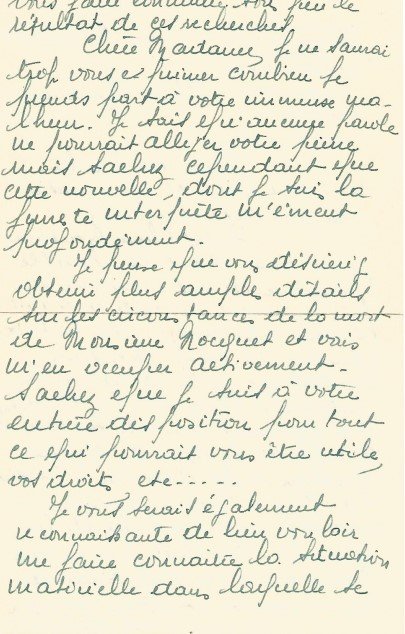 vous faire connaître sous peu le
résultat de ces recherches.
Chère Madame, Je ne saurai
trop vous exprimer combien je
prends part à votre immense ma-
lheur. Je sais qu'aucune parole
ne pourrait alléger votre peine
mais sachez cependant que
cette nouvelle, dont je suis la
funeste interprète m'émeut
profondément.
Je pense que vous désirerez
obtenir plus amples détails
sur les circonstances de la mort
de Monsieur Nocquet et vais
m'en occuper activement.
Sachez que je suis à votre
entière disposition pour tout
ce qui pourrait vous être utile,
vos droits, etc.....
Je vous serais également
reconnaissante de bien vouloir
me faire connaître la situation
matérielle dans laquelle se